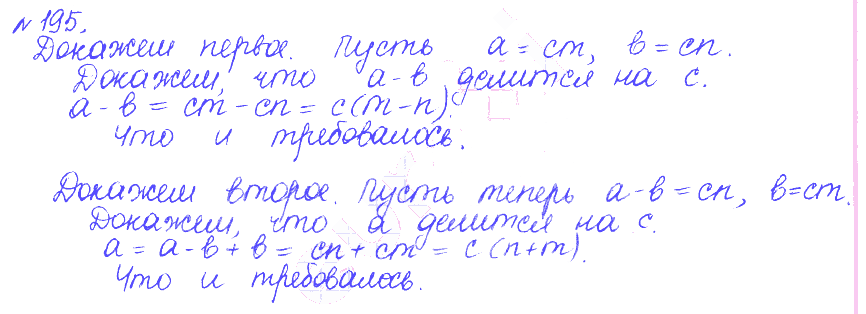 № 195.
Докажем первое. Пусть a = cm, b = cn.
Докажем, что a - b делится на c.
a - b = cm - cn = c(m - n).
Что и требовалось.
Докажем второе. Пусть теперь a - b = cn, b = cm.
Докажем, что a делится на c.
a = a - b + b = cn + cm = c(n + m).
Что и требовалось.